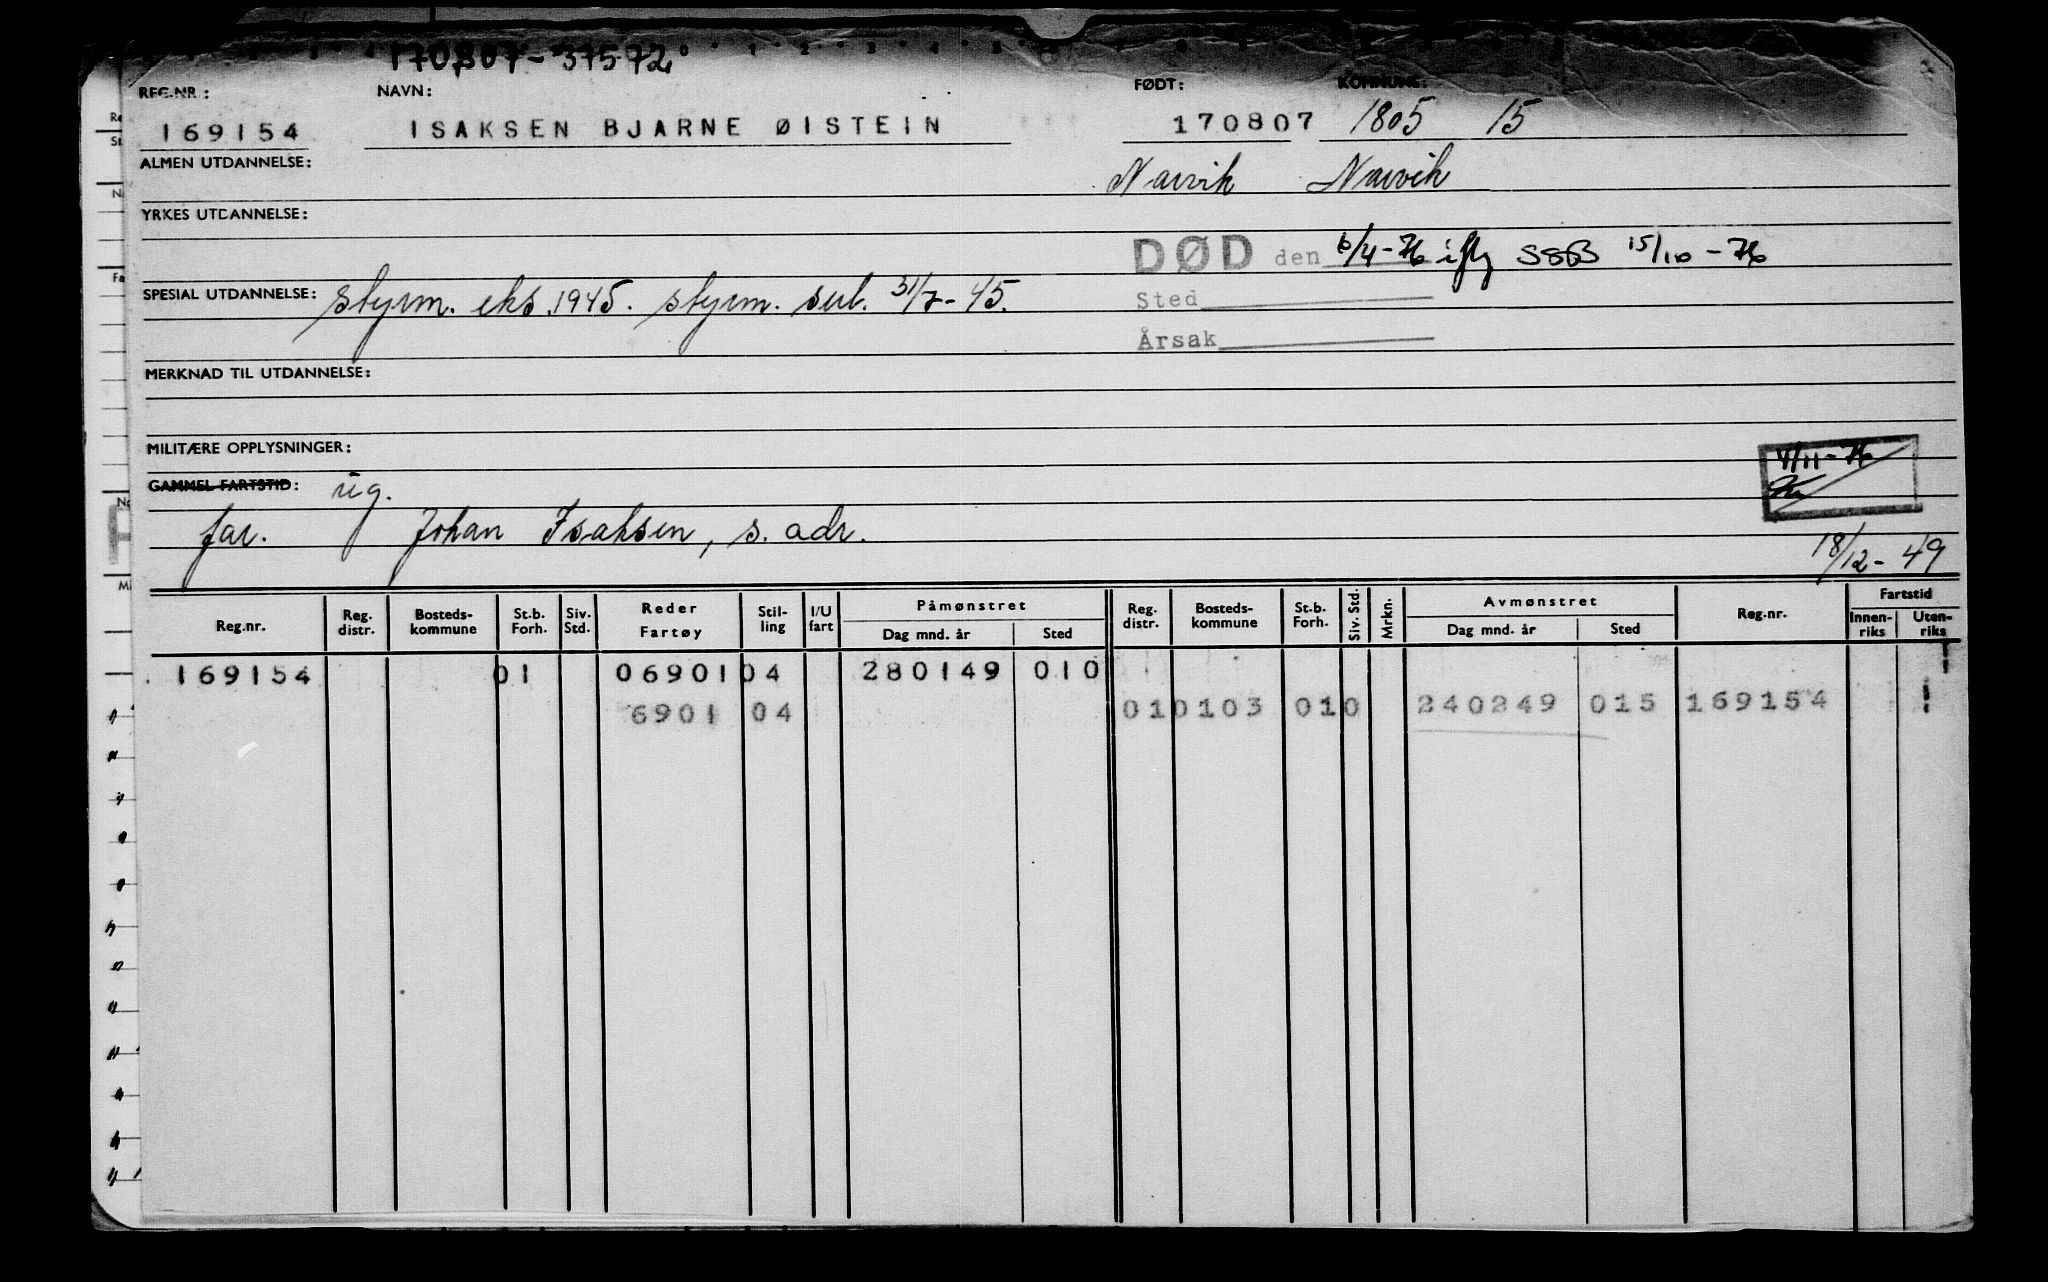 170807-37572
REG.NR.: NAVN: FØDT: KOMMUNE:
169154 ISAKSEN BJARNE ØISTEIN 170807 1805 15
ALMEN UTDANNELSE: Narvik Narvik
YRKES UTDANNELSE:
DØD den 6/4-76 iflg SSB 15/10-76
SPESIAL UTDANNELSE: styrm. eks. 1945. styrm. sert. 31/7-45.
Sted
Årsak
MERKNAD TIL UTDANNELSE:
MILITÆRE OPPLYSNINGER:
4/11-76
GAMMEL FARTSTID: ug.
far. Johan Isaksen, s. adr.
18/12-49
Reg.nr. Reg. distr. Bosteds-kommune St.b. Forh. Siv. Std. Reder Fartøy Stil-ling I/U fart Påmønstret Dag mnd. år Sted Reg. distr. Bosteds-kommune St.b. Forh. Siv. Std. Mrkn. Avmønstret Dag mnd. år Sted Reg.nr. Fartstid Innen-riks Uten-riks
169154 01 06901 04 280149 010 1
6901 04 010103 010 240249 015 169154 1